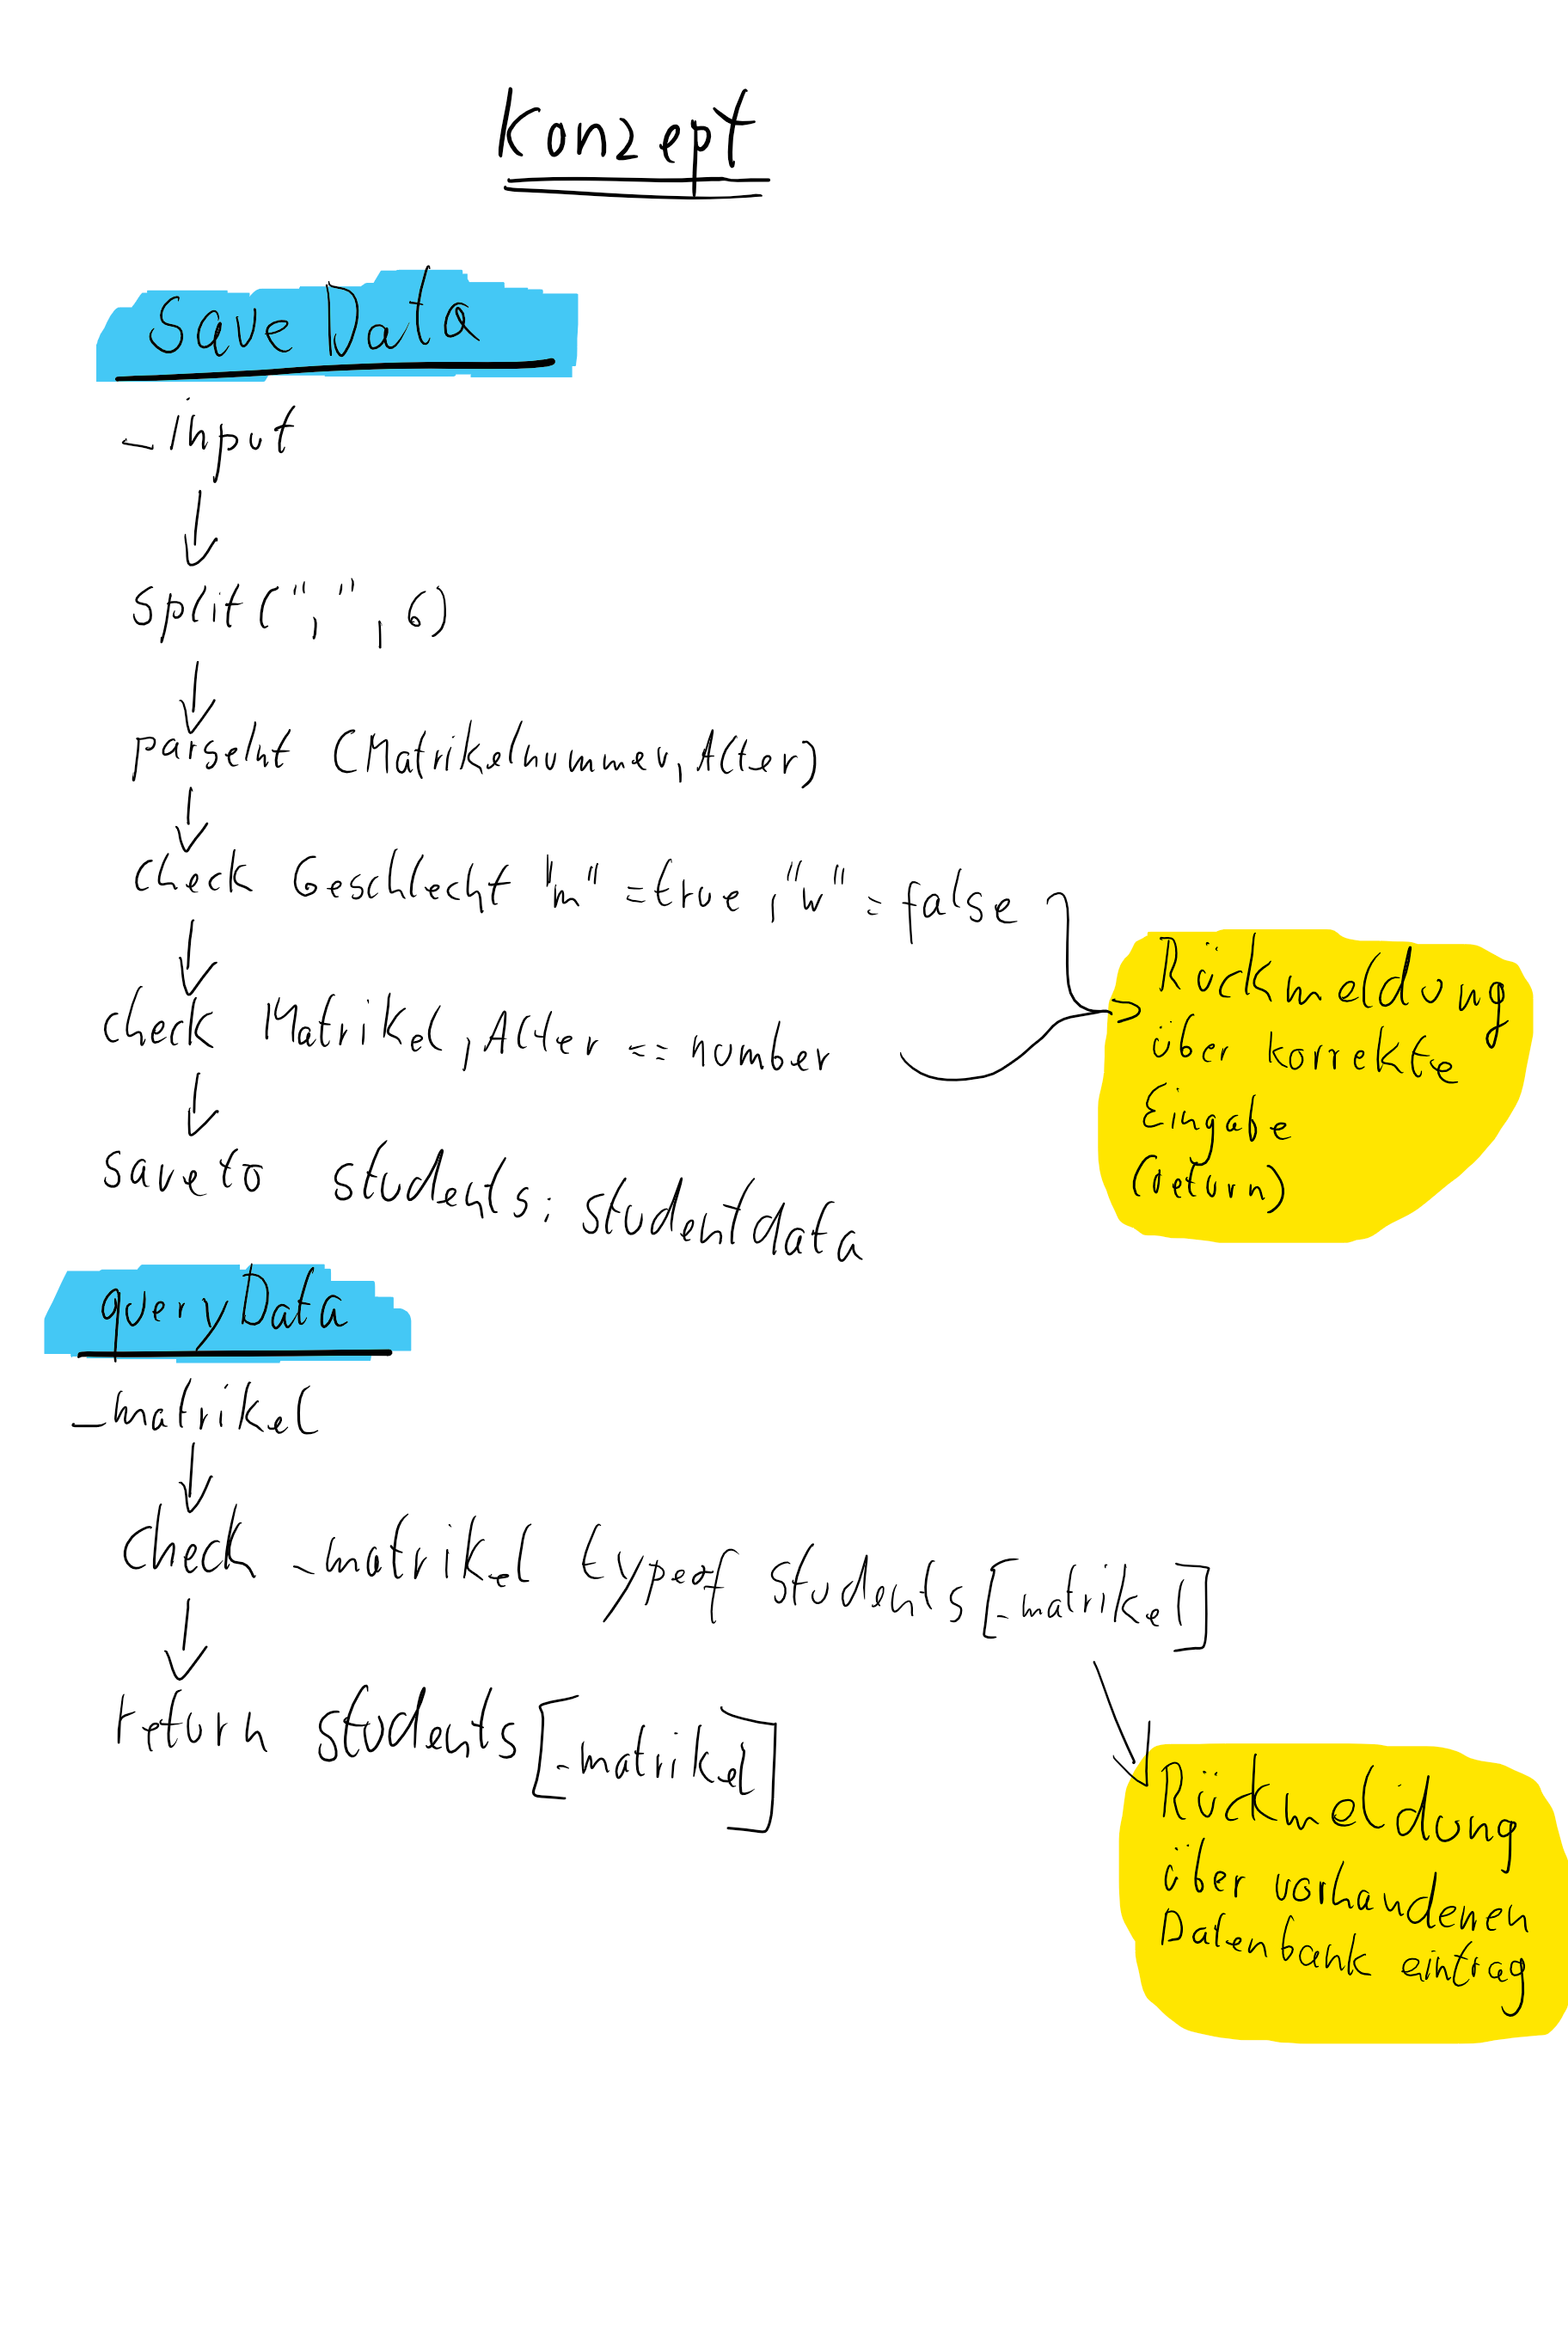 Konzept
saveData
_input
split(",",6)
parseInt (Matrikelnummer, Alter)
check Geschlecht "m" = true, "w" = false
check Matrikel, Alter == number
Rückmeldung
über korrekte
Eingabe
(return)
save to students: studentdata
queryData
_matrikel
check _matrikel typeof students[_matrikel]
return students[_matrikel]
Rückmeldung
über vorhandenen
Datenbank eintrag